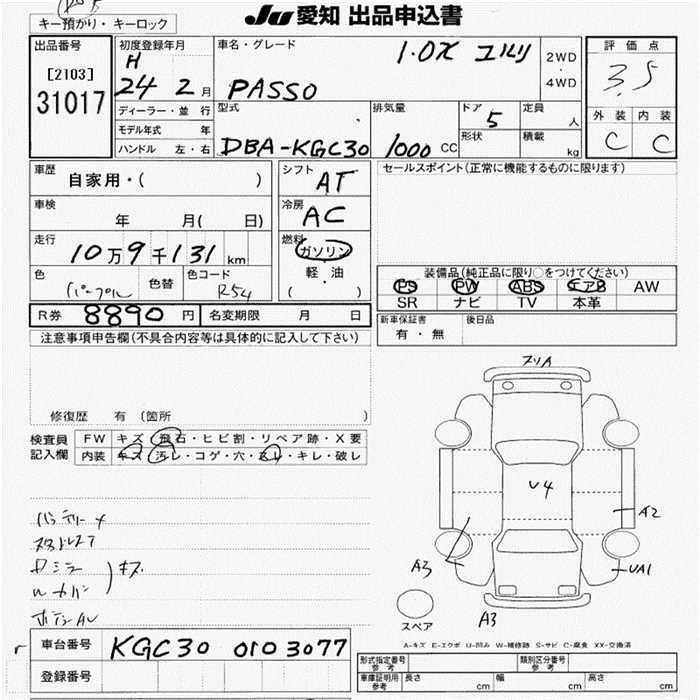 JU愛知 出品申込書
キー預かり・キーロック
出品番号
[2103]
31017
初度登録年月
H
24 2 月
ディーラー・並 行
モデル年式 年
ハンドル 左・右
車名・グレード
1.0X
PASSO
2WD
4WD
評 価 点
3.5
外 装 内 装
C C
型式
DBA-KGC30
排気量
1000 CC
ドア
5
形状
定員
人
積載
kg
車歴
自家用・( )
車検
年 月( 日)
走行
10万9千131 km
色
パープル
色替
色コード
R54
シフト
AT
冷房
AC
燃料
ガソリン
軽・油
( )
セールスポイント(正常に機能するものに限ります)
装備品(純正品に限り○をつけてください)
PS PW ABS エアB AW
SR ナビ TV 本革
R券 8890 円 名変期限 月 日
新車保証書
有・無
後日品
注意事項申告欄(不具合内容等は具体的に記入して下さい)
修復歴 有 (箇所 )
検査員
記入欄
FW キズ・飛石・ヒビ割・リペア跡・X要
内装 キズ・汚レ・コゲ・穴・スレ・キレ・破レ
U4
A2
A3
UA1
A3
スペア
A-キズ E-エクボ U-凹み W-補修跡 S-サビ C-腐食 XX-交換済
車台番号 KGC30 0103077
登録番号
型式指定番号
参考
類別区分番号
参考
車庫証明用
参考
長さ cm 幅 cm 高さ cm